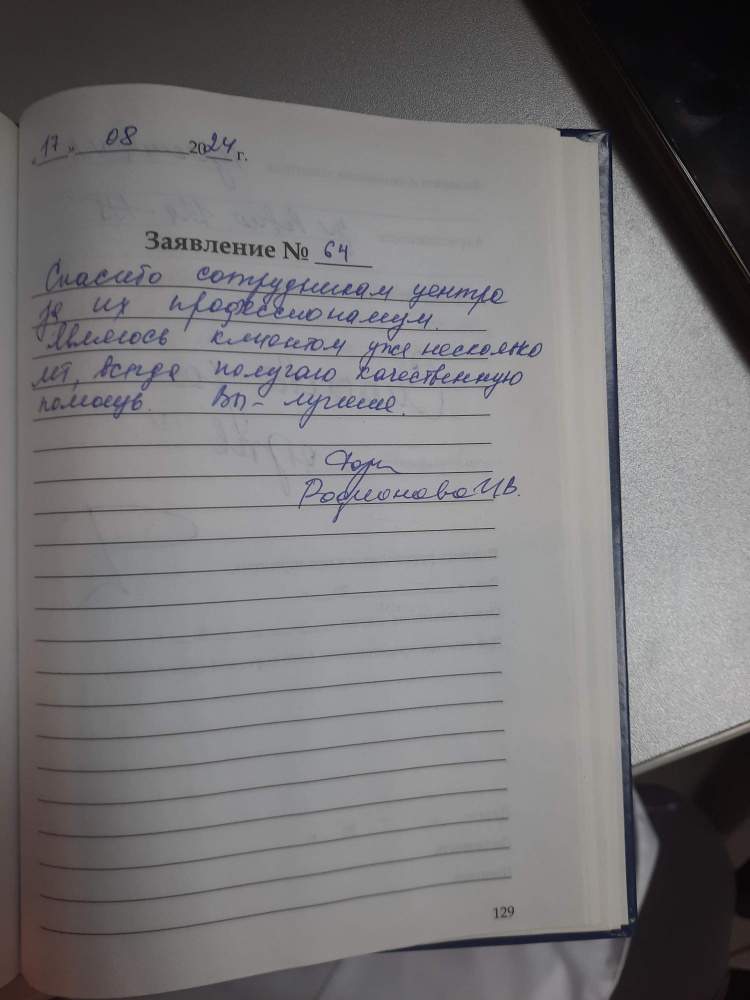 „17" 08 2024 г.
Заявление № 64
Спасибо сотрудникам центра
за их профессионализм.
Являюсь клиентом уже несколько
лет, всегда получаю качественную
помощь. Вы - лучшие.
Родионова И.В.
129